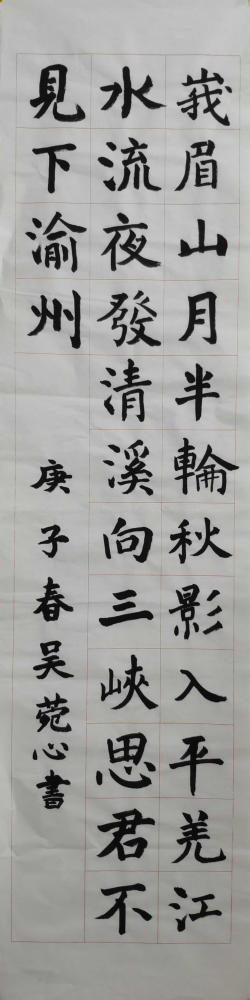 峩眉山月半輪秋影入平羌江
水流夜發清溪向三峽思君不
見下渝州
庚子春吴菀心書